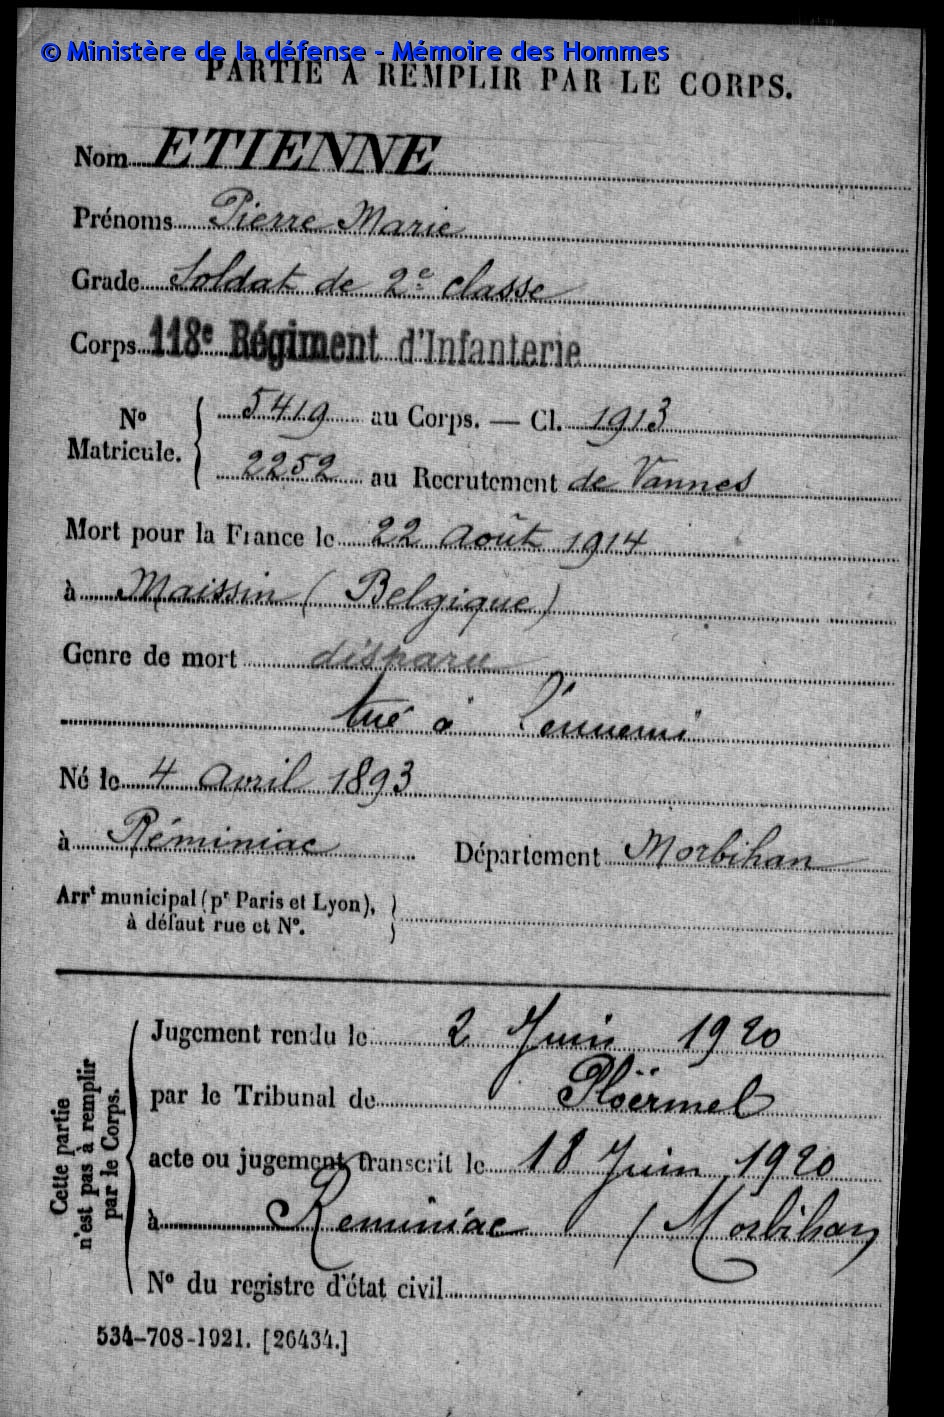 © Ministère de la défense - Mémoire des Hommes
PARTIE À REMPLIR PAR LE CORPS.
Nom ETIENNE
Prénoms Pierre Marie
Grade Soldat de 2e classe
Corps 118e Régiment d'Infanterie
No Matricule. { 5419 au Corps. — Cl. 1913
2252 au Recrutement de Vannes
Mort pour la France le 22 Août 1914
à Maissin (Belgique)
Genre de mort disparu
tué à l'ennemi
Né le 4 Avril 1893
à Réminiac Département Morbihan
Arrt municipal (pr Paris et Lyon), }
à défaut rue et No.
Cette partie n'est pas à remplir par le Corps.
Jugement rendu le 2 Juin 1920
par le Tribunal de Ploërmel
acte ou jugement transcrit le 18 Juin 1920
à Réminiac (Morbihan)
No du registre d'état civil
534-708-1921. [26434.]